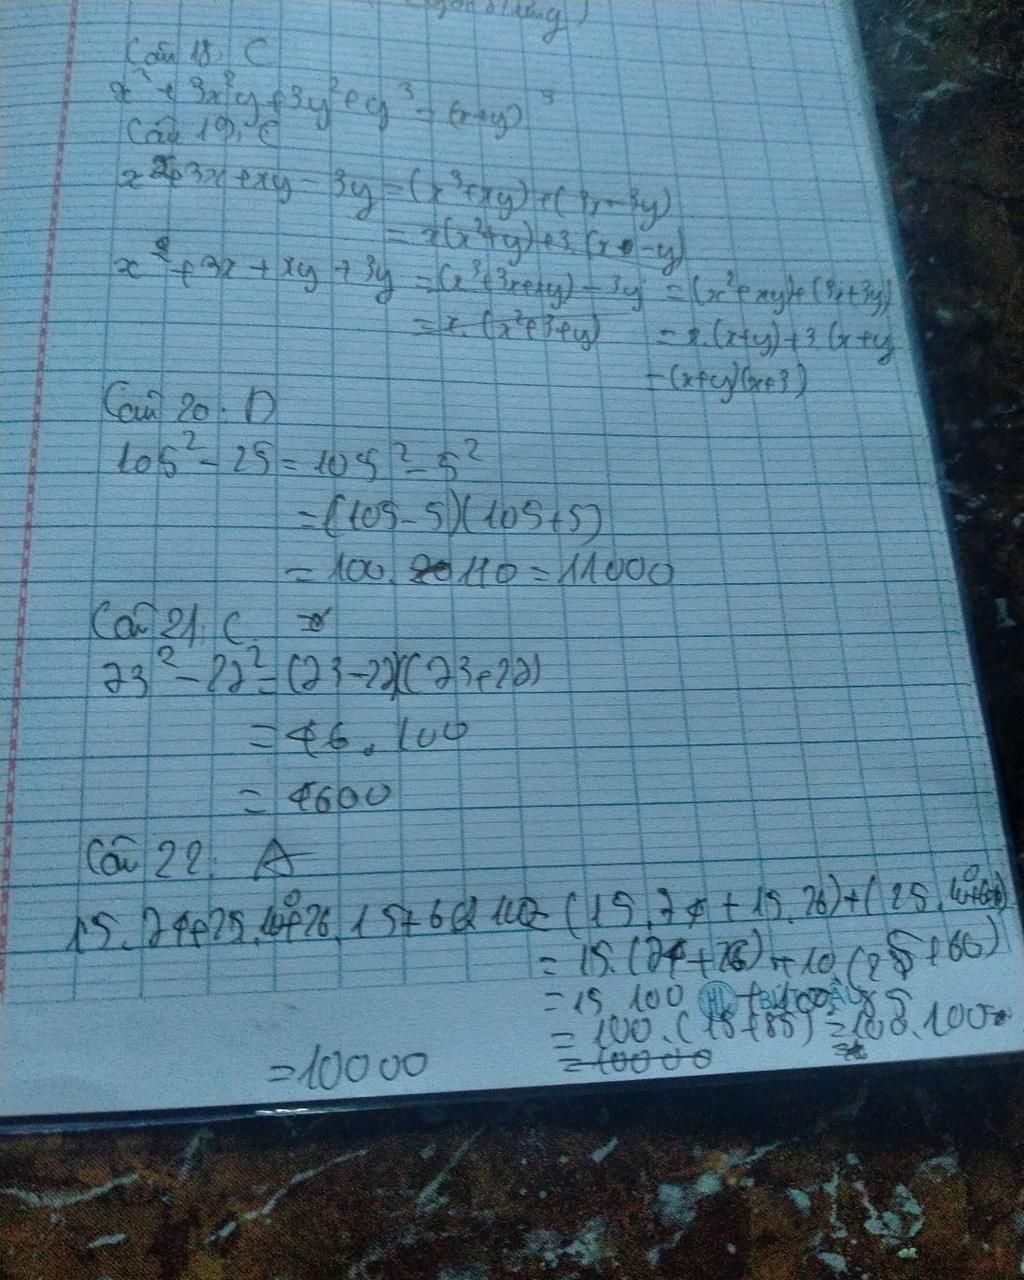 Câu 18. C
x³ + 3x²y + 3y² + y³ = (x+y)³
Câu 19. C
x² + 3x + xy - 3y = (x³+xy) + (3x-3y)
= x(x²+y) + 3.(x-y)
x² + 3x + xy + 3y = (x³+3x+xy) - 3y = (x²+xy)+(3x+3y)
= x.(x²+3+y) = x.(x+y)+3.(x+y
= (x+y)(x+3)
Câu 20. D
105² - 25 = 105² - 5²
= (105-5)(105+5)
= 100. 110 = 11000
Câu 21. C
73² - 27² = (73-27)(73+27)
= 46. 100
= 4600
Câu 22. A
15. 74+25. 10+26. 15+60. 10= (15. 74 + 15. 26)+(25.
= 15.(74+26) + 10.(25+60)
= 15 100 +
= 100.(15+85) = 100.100
= 10000 = 10000